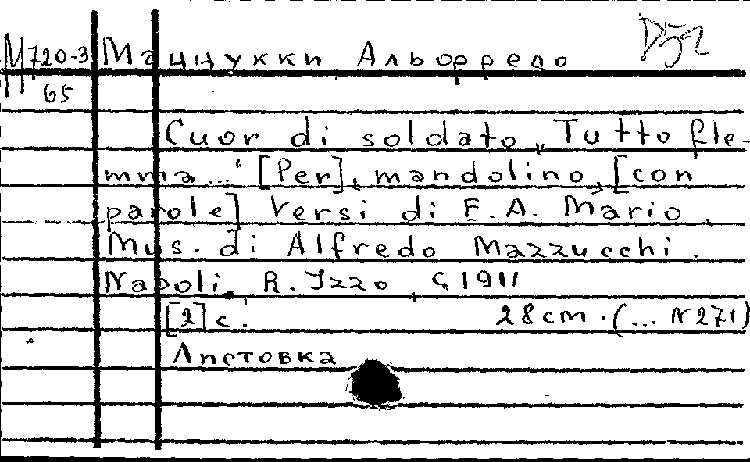 М 720-3 Маццукки Альфредо
65
Cuor di soldato „Tutto fle-
mma..." [Per] mandolino, [con
parole] Versi di E. A. Mario.
Mus. di Alfredo Mazzucchi.
Napoli, R. Izzo, c 1911
[2] с. 28 cm. (... N 271)
Листовка